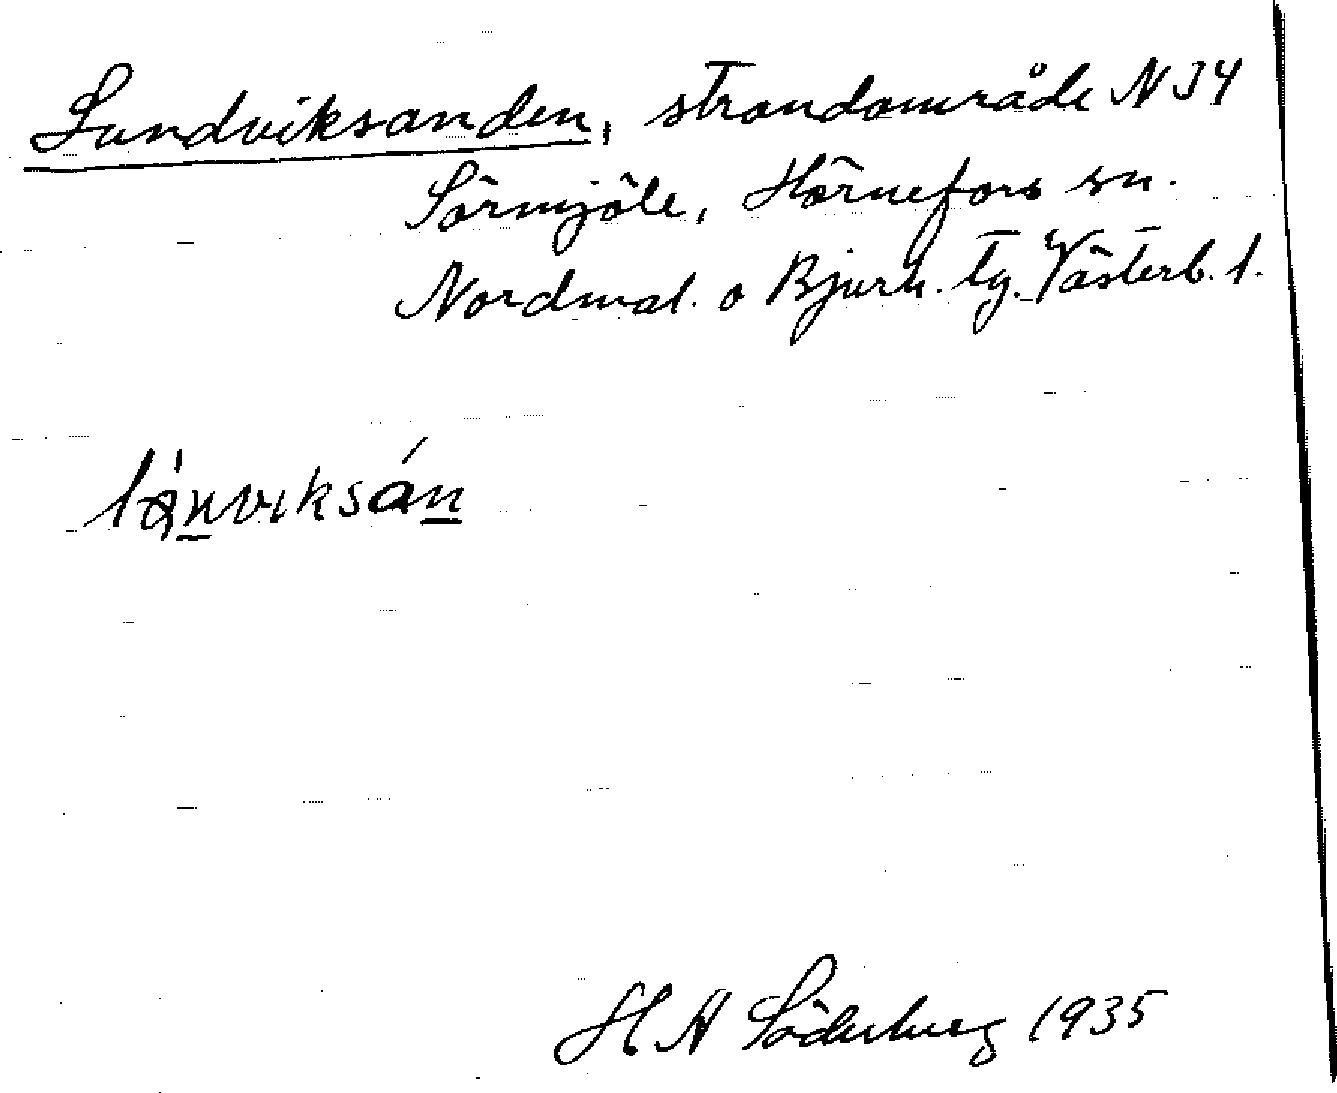 Lundviksanden, strandområde N J4
Sörmjöle, Hörnefors sn.
Nordmal. o Bjurh. tg. Västerb. l.
H A Söderberg 1935